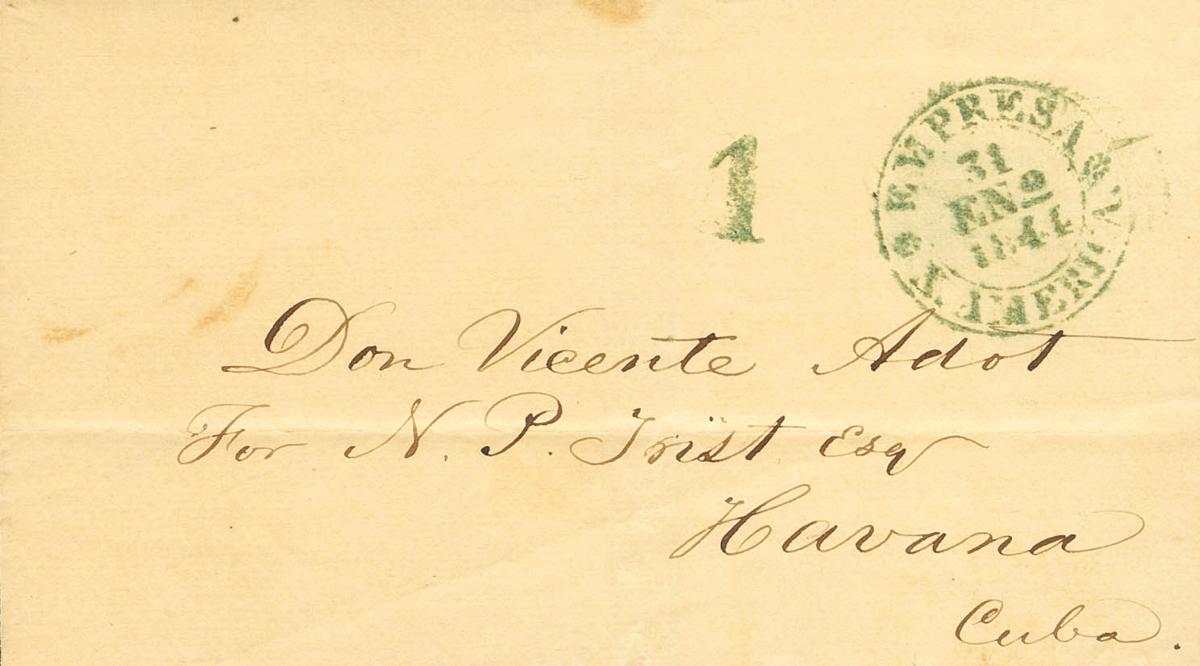 1
EMPRESA
N. AMERICANA
31
EN°
1844
Don Vicente Adot
For N. P. Trist Esq
Havana
Cuba.